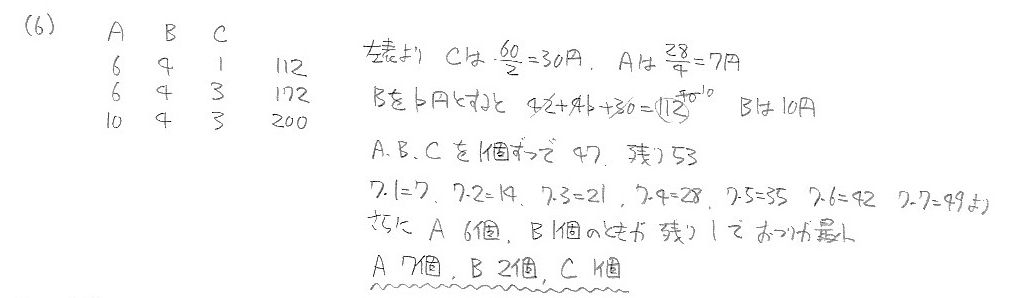 (6)
A B C
6 4 1 112
6 4 3 172
10 4 3 200
左表より Cは 60/2=30円. Aは 28/4=7円
Bをb円とすると 42+4b+30=112 40 10 Bは10円
A.B.C を1個ずつで 47. 残り53
7・1=7. 7・2=14. 7・3=21, 7・4=28, 7・5=35 7・6=42 7・7=49より
さらに A 6個, B 1個のときが 残り1で おつりが最小
A 7個, B 2個, C 1個